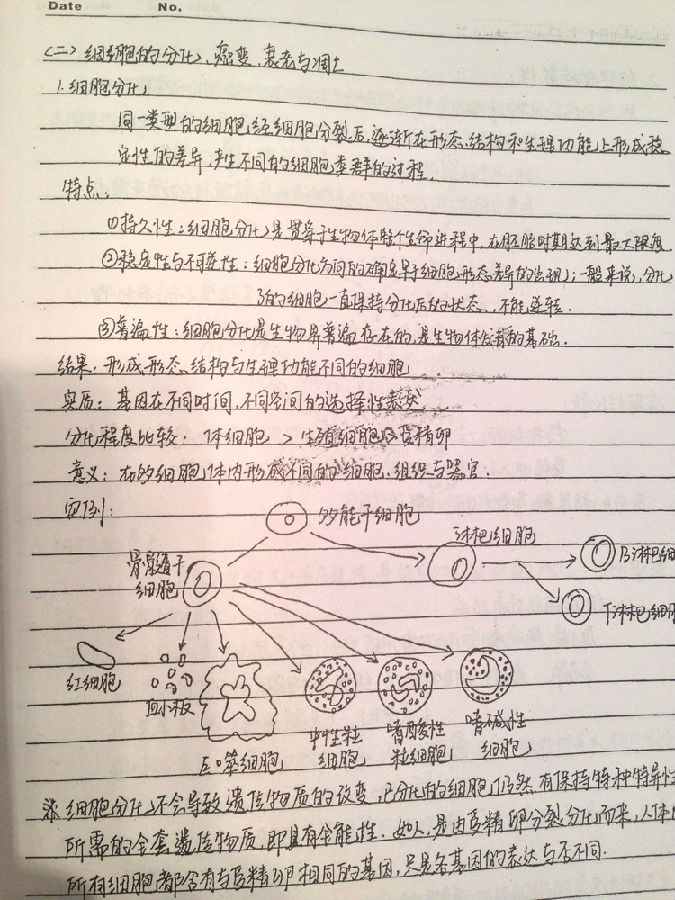 Date No.
(二)细胞的分化、癌变、衰老与凋亡
1.细胞分化
同一类型的细胞经细胞分裂后,逐渐在形态、结构和生理功能上形成稳
定性的差异,产生不同的细胞类群的过程.
特点:
①持久性:细胞分化是贯穿于生物体整个生命进程中,在胚胎时期达到最大限度
②稳定性与不可逆性:细胞分化方向的确定早于细胞形态差异的出现;一般来说,分化
了的细胞一直保持分化后的状态,不能逆转.
③普遍性:细胞分化是生物界普遍存在的,是生物体发育的基础.
结果:形成形态、结构与生理功能不同的细胞
实质:基因在不同时间、不同空间的选择性表达
分化程度比较:体细胞 > 生殖细胞 受精卵
意义:在多细胞体内形成不同的细胞、组织与器官.
图例:
多能干细胞
淋巴细胞
B淋巴细
骨髓造干
细胞
T淋巴细胞
红细胞
血小板
巨噬细胞
中性粒
细胞
嗜酸性
粒细胞
嗜碱性
细胞
※细胞分化不会导致遗传物质的改变,已分化的细胞仍然有保持物种特异性
所需的全套遗传物质,即具有全能性.如人,是由受精卵分裂分化而来,人体
所有细胞都含有与受精卵相同的基因,只是各基因的表达与否不同.